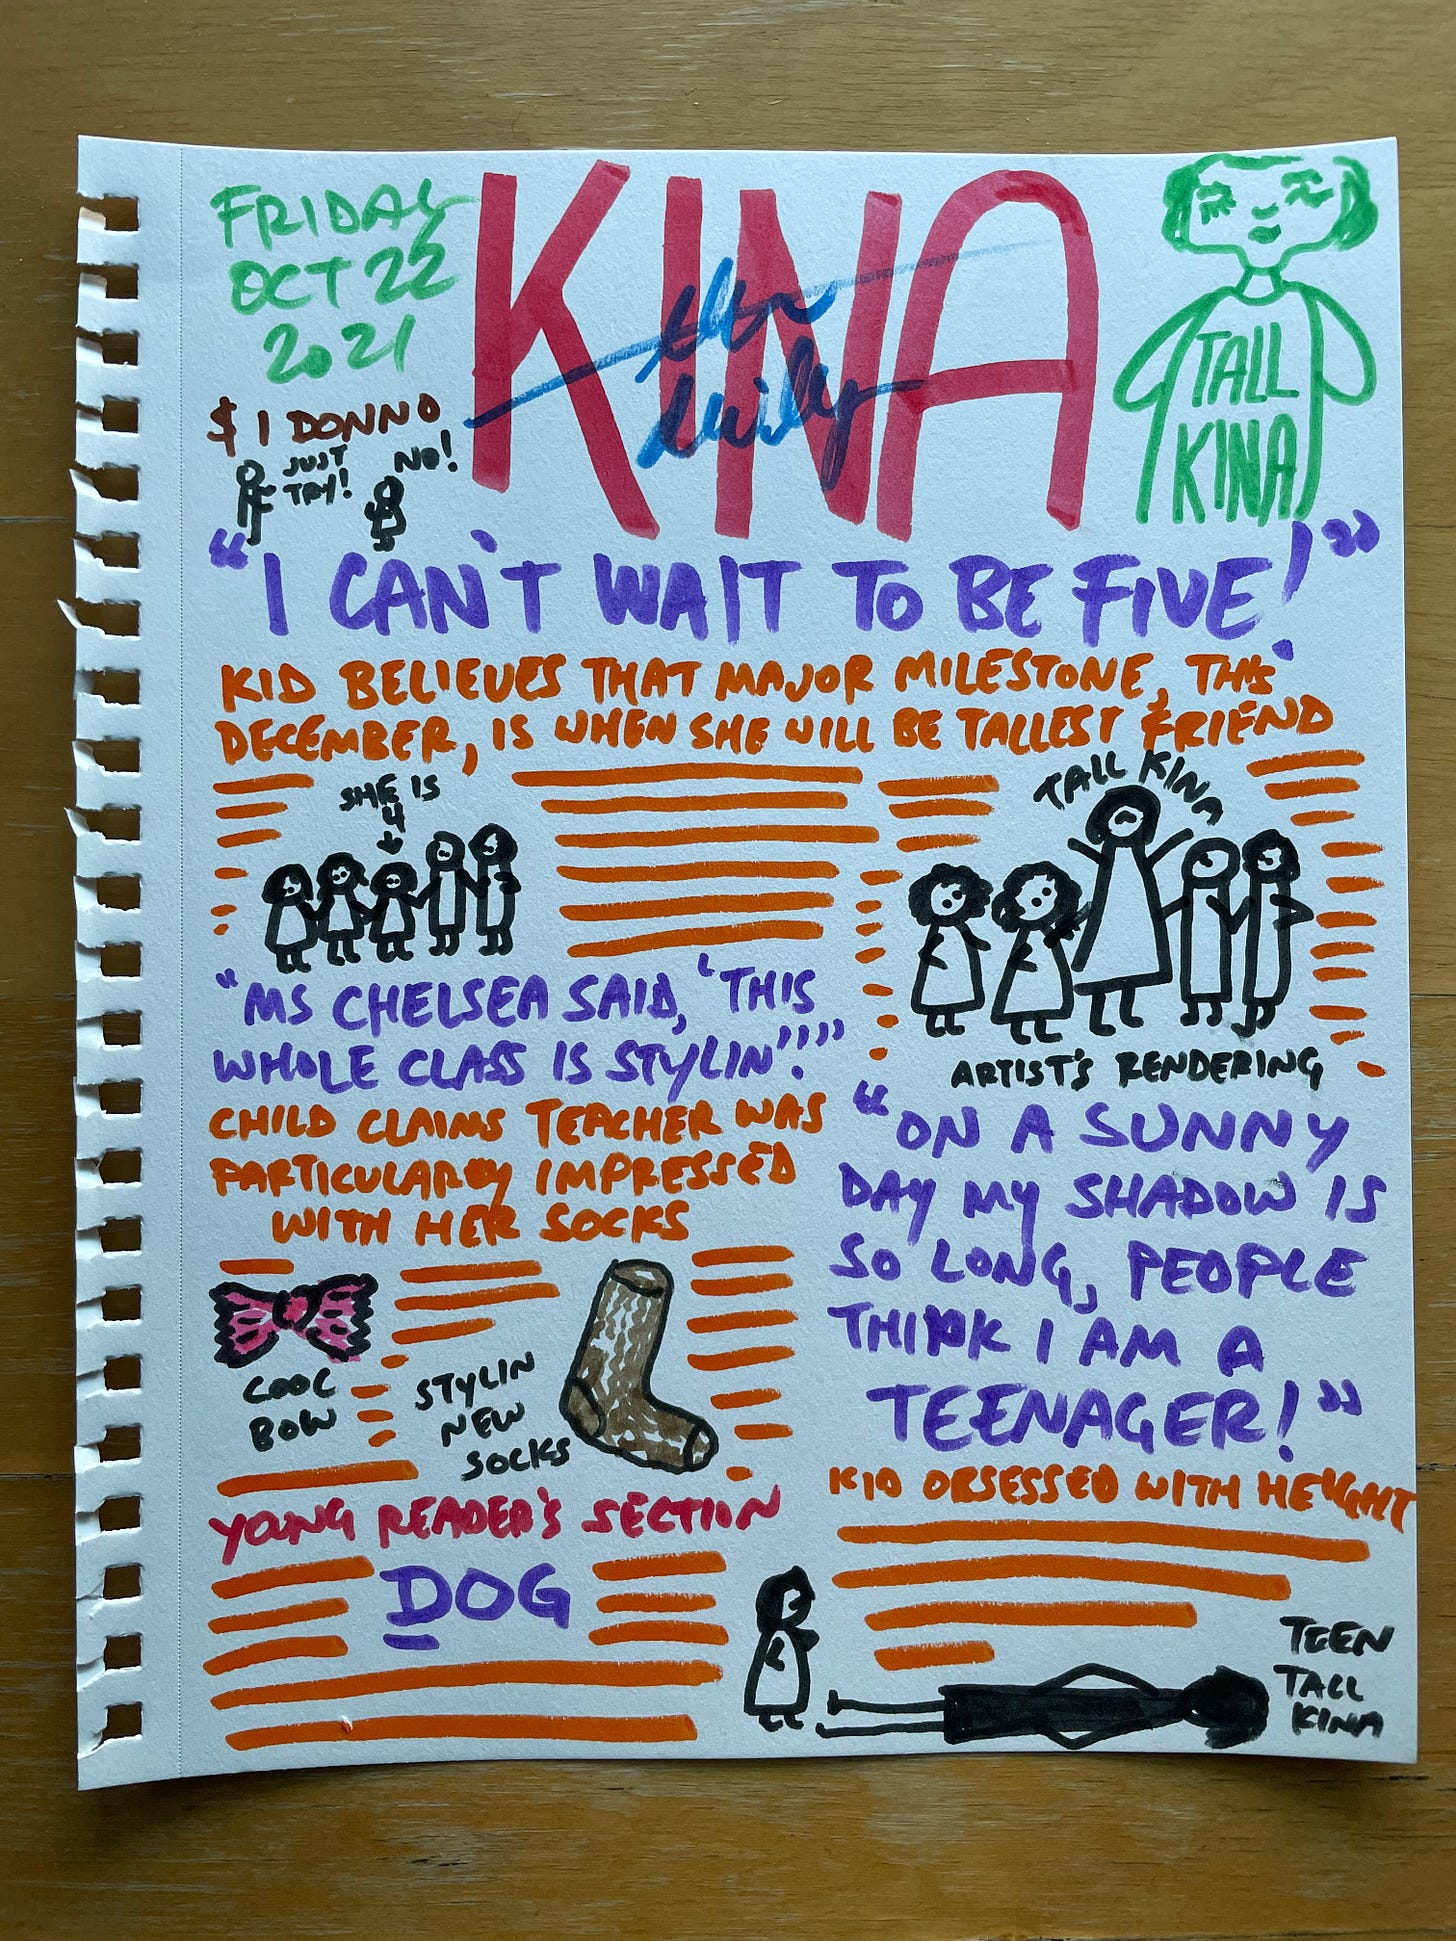 FRIDAY
OCT 22
2021
KINA
the
daily
TALL
KINA
$ I DONNO
JUST
TRY!
NO!
"I CAN'T WAIT TO BE FIVE!"
KID BELIEVES THAT MAJOR MILESTONE, THIS
DECEMBER, IS WHEN SHE WILL BE TALLEST FRIEND
SHE IS
4
TALL KINA
ARTIST'S RENDERING
"MS CHELSEA SAID, 'THIS
WHOLE CLASS IS STYLIN''."
CHILD CLAIMS TEACHER WAS
PARTICULARLY IMPRESSED
WITH HER SOCKS
COOL
BOW
STYLIN
NEW
SOCKS
"ON A SUNNY
DAY MY SHADOW IS
SO LONG, PEOPLE
THINK I AM A
TEENAGER!"
KID OBSESSED WITH HEIGHT
YOUNG READER'S SECTION
DOG
TEEN
TALL
KINA